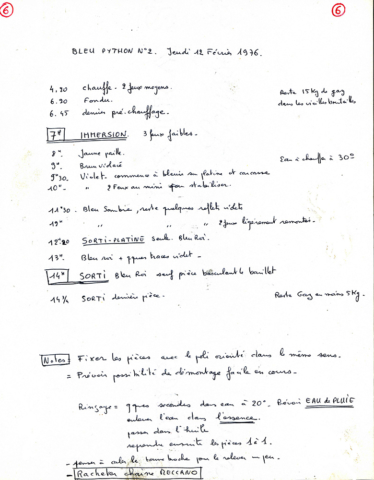 6 6
BLEU PYTHON N°2. Jeudi 12 Février 1976.
4.20 chauffe. 2 feux moyens. Reste 15 kg de gaz
6.20 Fondu. dans les vieilles bouteilles
6.45 dernier pré-chauffage.
7" IMMERSION. 3 feux faibles.
8" Jaune paille.
9" Brun violacé Eau à chauffé à 30°
9"30. Violet. commence à bleuir sur platine et carcasse
10". " 2 Feux au mini pour stabiliser.
11"30. Bleu Sombre, reste quelques reflets violets
12" " " " " 2 feux légèrement remontés.
SORTI-PLATINE Seule. Bleu Roi.
13". Bleu roi + qques traces violet.
14" SORTI Bleu Roi sauf pièce barillet
14¼ SORTI dernière pièce. Reste Gaz au moins 5 kg.
Notes: Fixer les pièces avec le poli orienté dans le même sens.
= Prévoir possibilité de démontage facile en cours.
Rinçage = qques secondes dans eau à 20°. Prévoir EAU de PLUIE
enlever l'eau dans l'essence.
passer dans l'huile
reprendre ensuite les pièces 1 à 1.
- penser à caler la bouche pour le relever un peu.
- Racheter chaine MECCANO